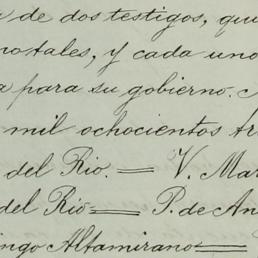 de dos testigos, qui
postales, y cada uno
para su gobierno.
mil ochocientos tr
del Rio. = V. Mar
del Rio = P. de An
ingo Altamirano =